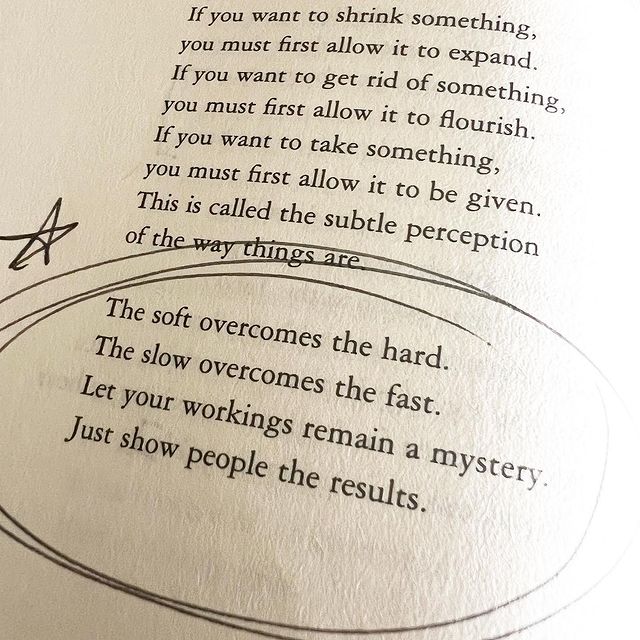 If you want to shrink something,
you must first allow it to expand.
If you want to get rid of something,
you must first allow it to flourish.
If you want to take something,
you must first allow it to be given.
This is called the subtle perception
of the way things are.
The soft overcomes the hard.
The slow overcomes the fast.
Let your workings remain a mystery.
Just show people the results.